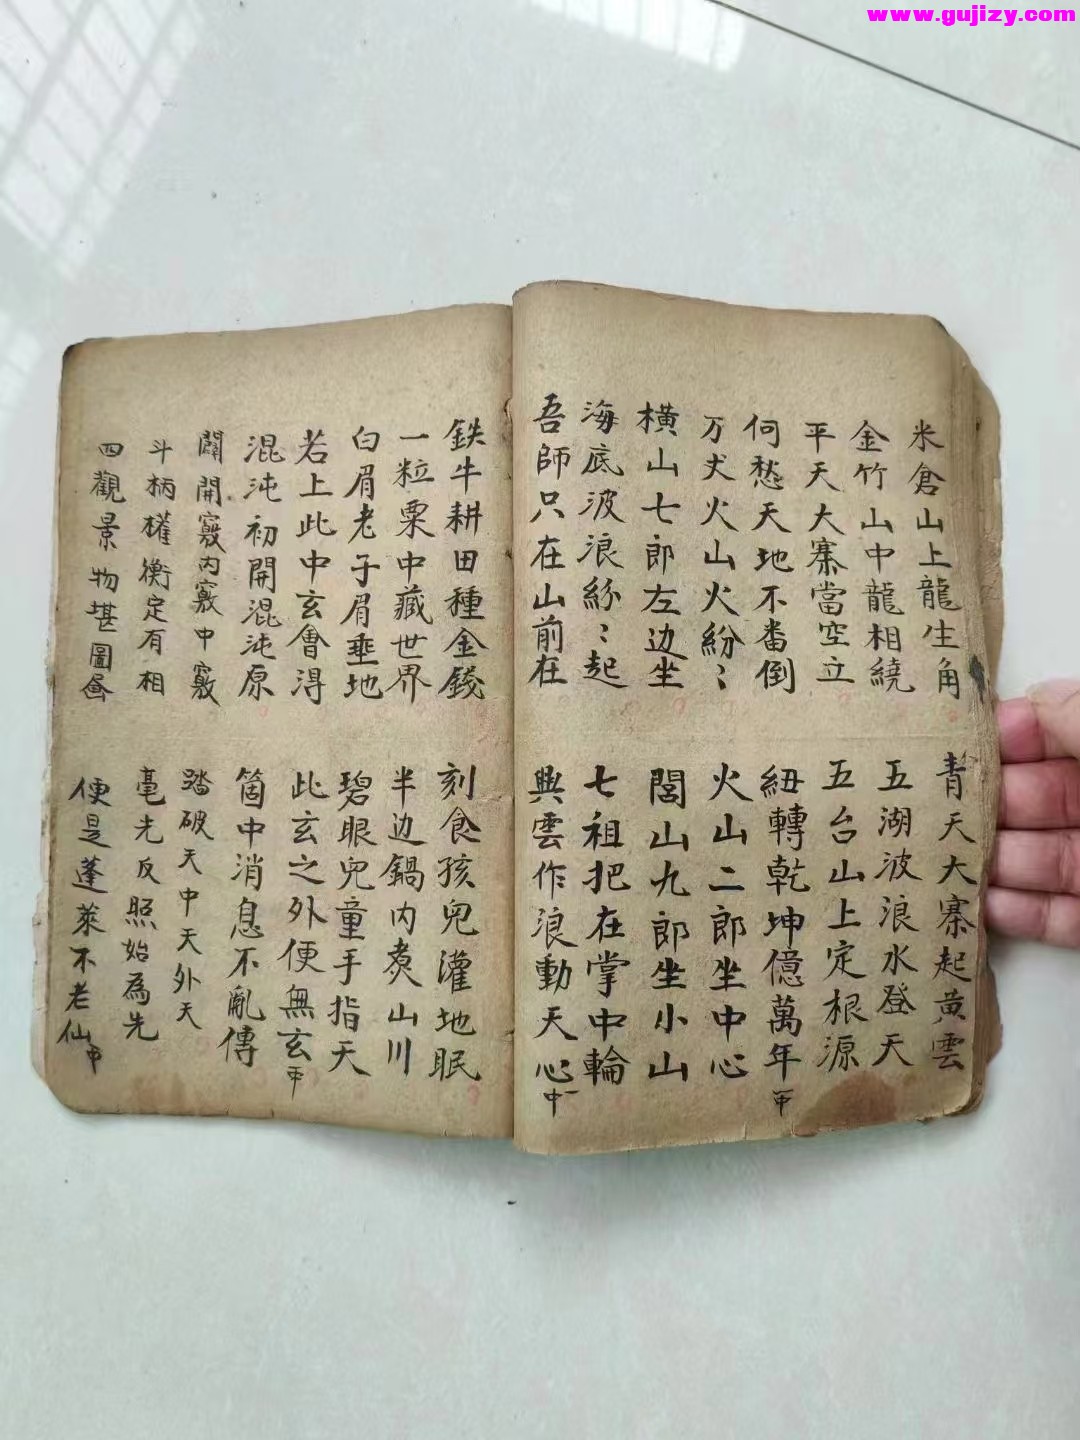 www.gujizy.com
米倉山上龍生角 青天大寨起黃雲
金竹山中龍相繞 五湖波浪水登天
平天大寨當空立 五台山上定根源
何愁天地不畨倒 紐轉乾坤億萬年
万丈火山火紛〻 火山二郎坐中心
橫山七郎左边坐 閭山九郎坐小山
海底波浪紛〻起 七祖把在掌中輪
吾師只在山前在 與雲作浪動天心
鉄牛耕田種金錢 刻食孩兒灌地眠
一粒粟中藏世界 半边鍋內煮山川
白眉老子眉垂地 碧眼兒童手指天
若上此中玄會淂 此玄之外便無玄
混沌初開混沌原 箇中消息不亂傳
闢開竅內竅中竅 踏破天中天外天
斗柄權衡定有相 毫光反照始為先
四觀景物堪圖畫 便是蓬萊不老仙